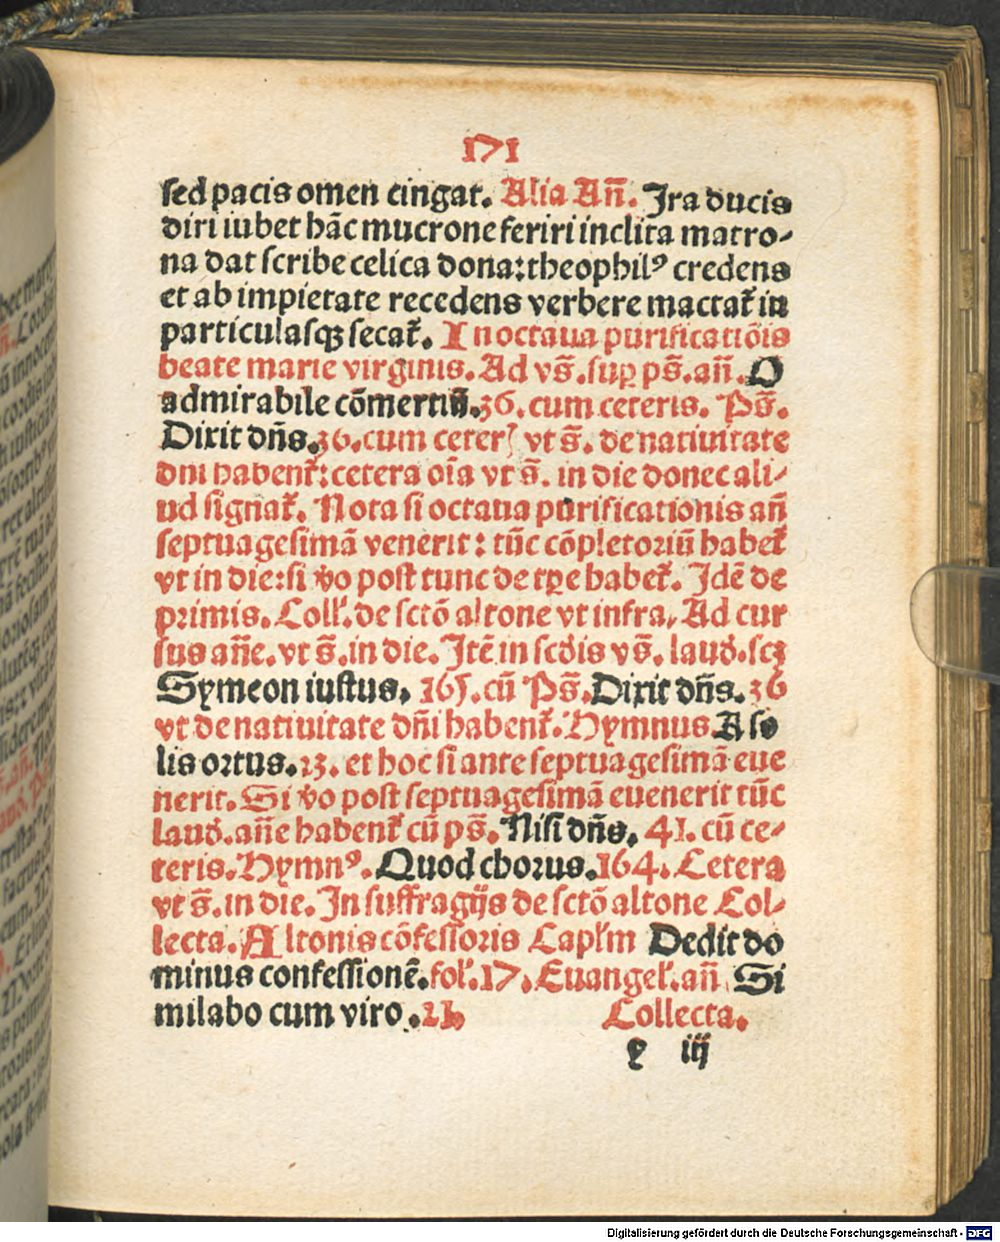 171
sed pacis omen cingat. Alia Añ. Ira ducis
diri iubet hāc mucrone feriri inclita matro-
na dat scribe celica dona: theophilꝰ credens
et ab impietate recedens verbere mactat᷑ in
particulasqꝫ secat᷑. In octaua purificatiōis
beate marie virginis. Ad vs̄. suꝑ ps̄. añ. O
admirabile cōmertiū. 36. cum ceteris. Ps̄.
Dixit dn̄s. 36. cum ceter᷑ vt s̄. de natiuitate
dni habent᷑: cetera oīa vt s̄. in die donec ali-
ud signat᷑. Nota si octaua purificationis añ
septuagesimā venerit: tūc cōpletoriū habet᷑
vt in die: si v̄o post tunc de tꝑe habet᷑. Idē de
primis. Coll'. de sctō altone vt infra, Ad cur
sus añe. vt s̄. in die. Itē in scdis vs̄. laud. scꝫ
Symeon iustus, 165. cū Ps̄. Dixit dn̄s. 36
vt de natiuitate dn̄i habent᷑. Hymnus. A so
lis ortus. 23. et hoc si ante septuagesimā eue
nerit. Si v̄o post septuagesimā euenerit tūc
laud. añe habent᷑ cū ps̄. Nisi dn̄s, 41. cū ce-
teris. Hymnꝰ. Quod chorus. 164. Cetera
vt s̄. in die. In suffragijs de sctō altone Col-
lecta. Altonis cōfessoris Capl'm Dedit do
minus confessionē. fol'. 17. Euangel'. añ. Si
milabo cum viro. 21. Collecta.
y iij
Digitalisierung gefördert durch die Deutsche Forschungsgemeinschaft - DFG